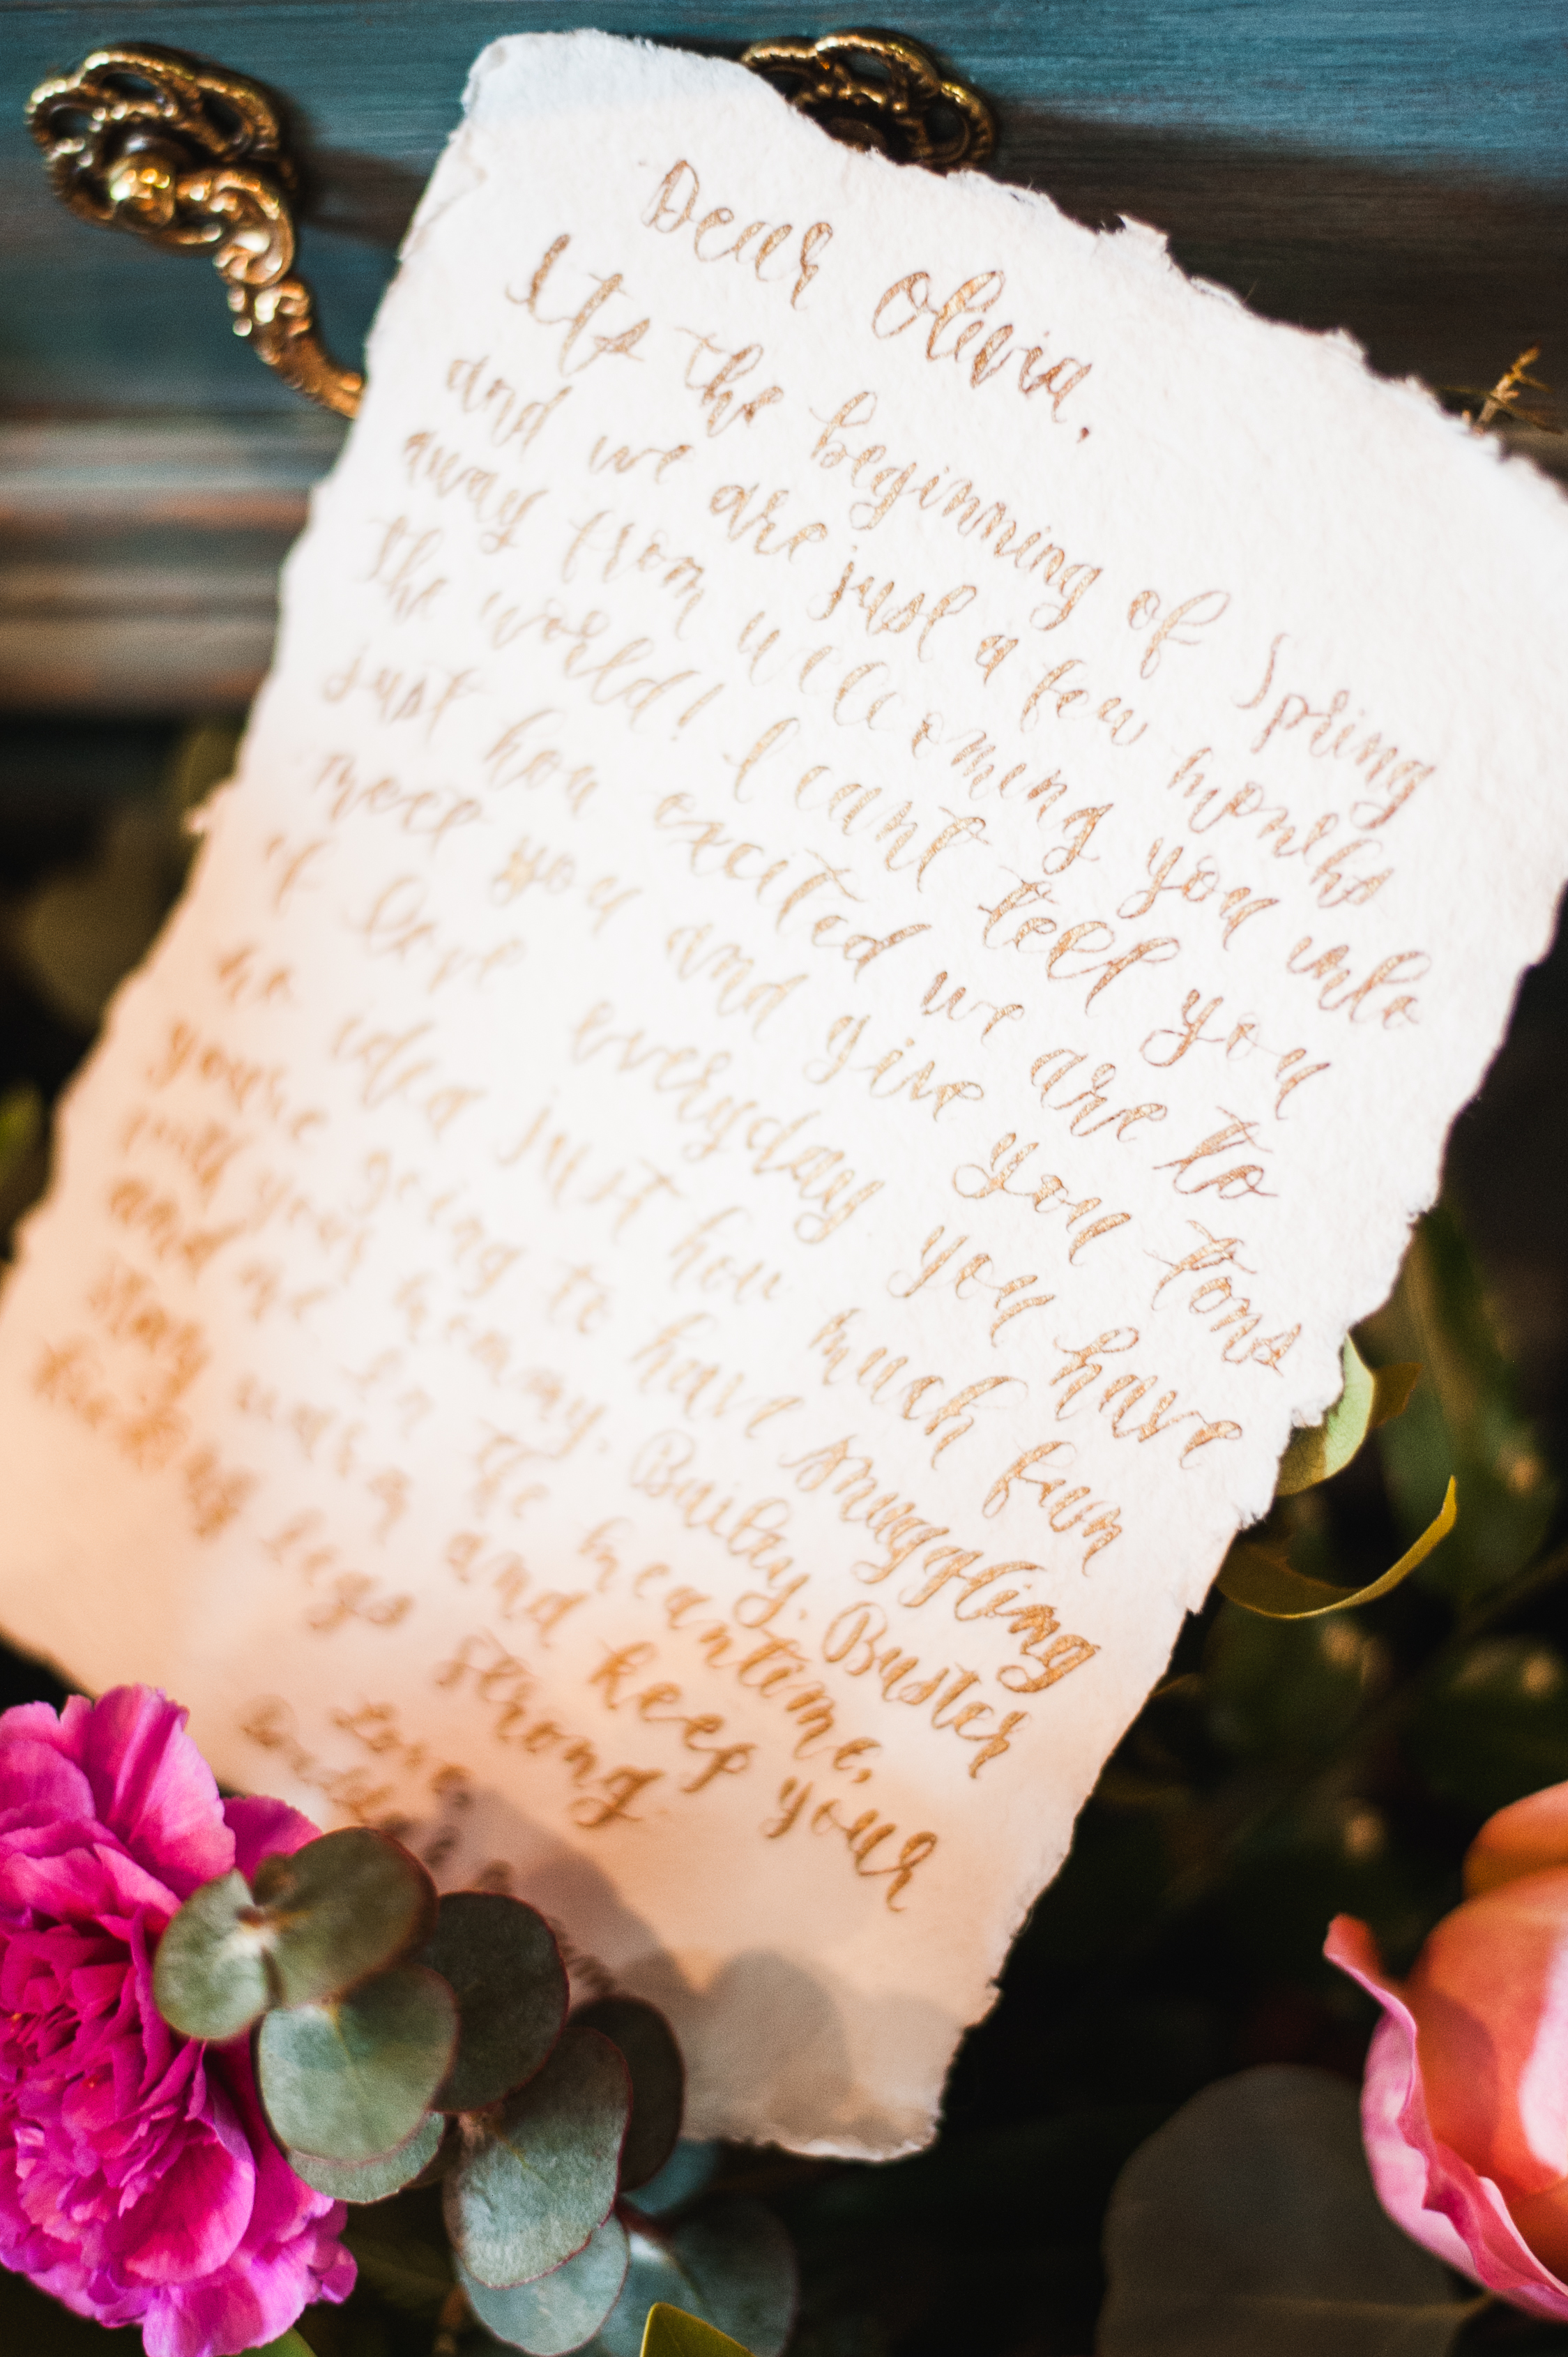 Dear Olivia,
Its the beginning of Spring
and we are just a few months
away from wellcoming you into
the world! I cant tell you
just how excited we are to
meet you and give you tons
of love everyday. You have
no idea just how much fun
you're going to have snuggling
with your mommy. Bailey, Buster
and me. In the meantime,
stay warm and keep your
kicking legs strong.
Love,